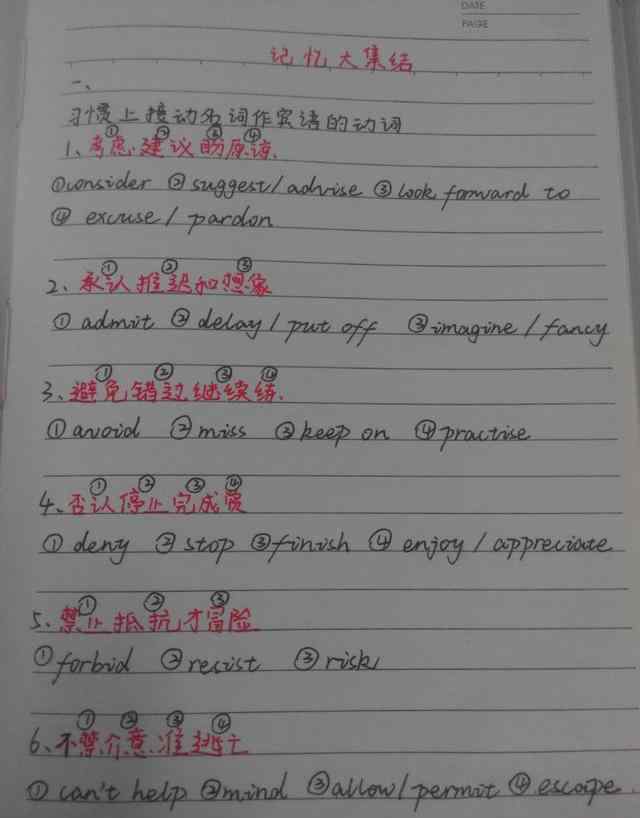 DATE
PAGE
记忆大集结
一、
习惯上接动名词作宾语的动词
① ② ③ ④
1、考虑建议盼原谅.
①consider ②suggest/advise ③look forward to
④ excuse/pardon
① ② ③
2、承认推迟和想象
① admit ② delay/put off ③imagine/fancy
① ② ③ ④
3、避免错过继续练.
①avoid ②miss ③keep on ④practise
① ② ③ ④
4、否认停止完成赏
① deny ② stop ③finish ④ enjoy/appreciate
① ② ③
5、禁止抵抗才冒险
①forbid ②resist ③risk
① ② ③ ④
6、不禁介意准逃亡
① can't help ②mind ③allow/permit ④ escape.